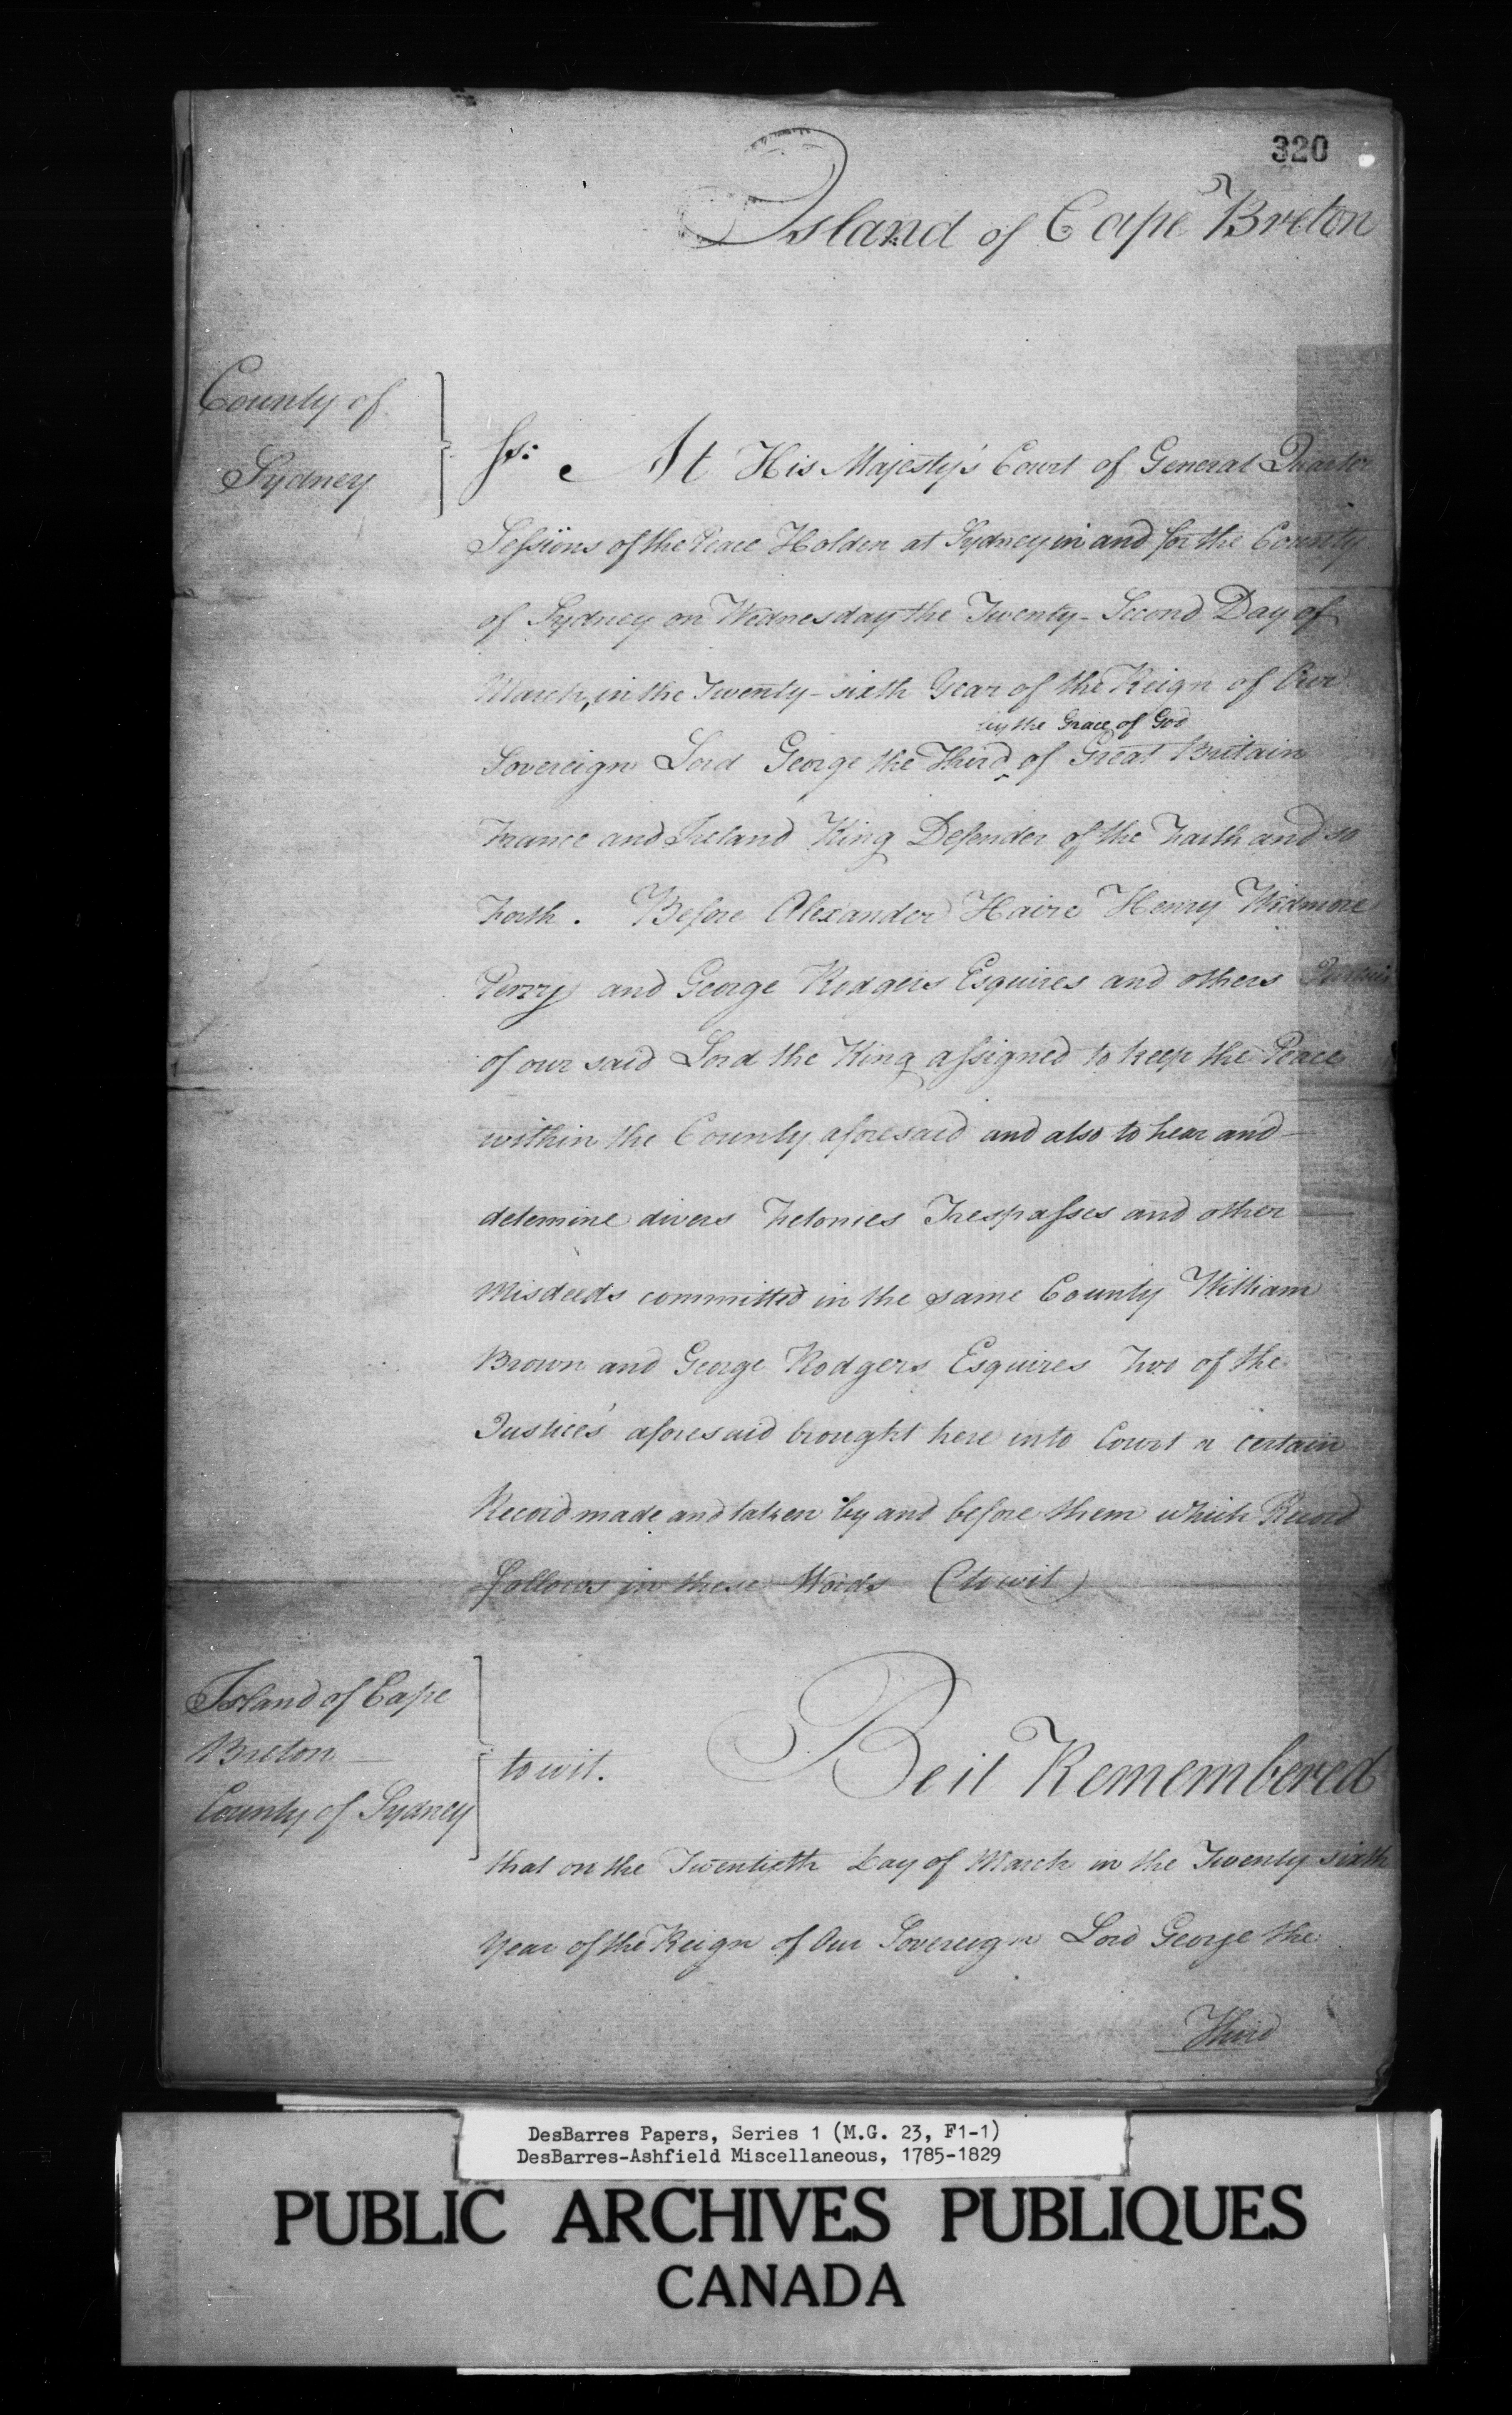 320
Island of Cape Breton
County of
Sydney
Ss: At His Majesty's Court of General Quarter
Sessions of the Peace Holden at Sydney in and for the County
of Sydney on Wednesday the Twenty-Second Day of
March, in the Twenty-sixth Year of the Reign of Our
by the Grace of God
Sovereign Lord George the Third ‸ of Great Britain
France and Ireland King Defender of the Faith and so
Forth. Before Alexander Haire Henry Widmore
Perry and George Rodgers Esquires and others Justices
of our said Lord the King assigned to keep the Peace
within the County aforesaid and also to hear and
detemine divers Felonies Trespasses and other
Misdeeds committed in the same County William
Brown and George Rodgers Esquires Two of the
Justice's aforesaid brought here into Court a certain
Record made and taken by and before them which Record
follows in these Words (to wit)
Island of Cape
Breton
County of Sydney
to wit. Be it Remembered
that on the Twentieth Day of March in the Twenty sixth
Year of the Reign of Our Sovereign Lord George the
Third
DesBarres Papers, Series 1 (M.G. 23, F1-1)
DesBarres-Ashfield Miscellaneous, 1785-1829
PUBLIC ARCHIVES PUBLIQUES
CANADA